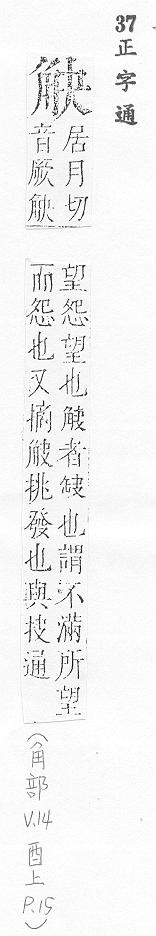 37正字通
觖
居月切
音厥觖
望怨望也觖者缺也謂不滿所望
而怨也又摘觖挑發也與抉通
(角部
V.14
酉上
P.15)